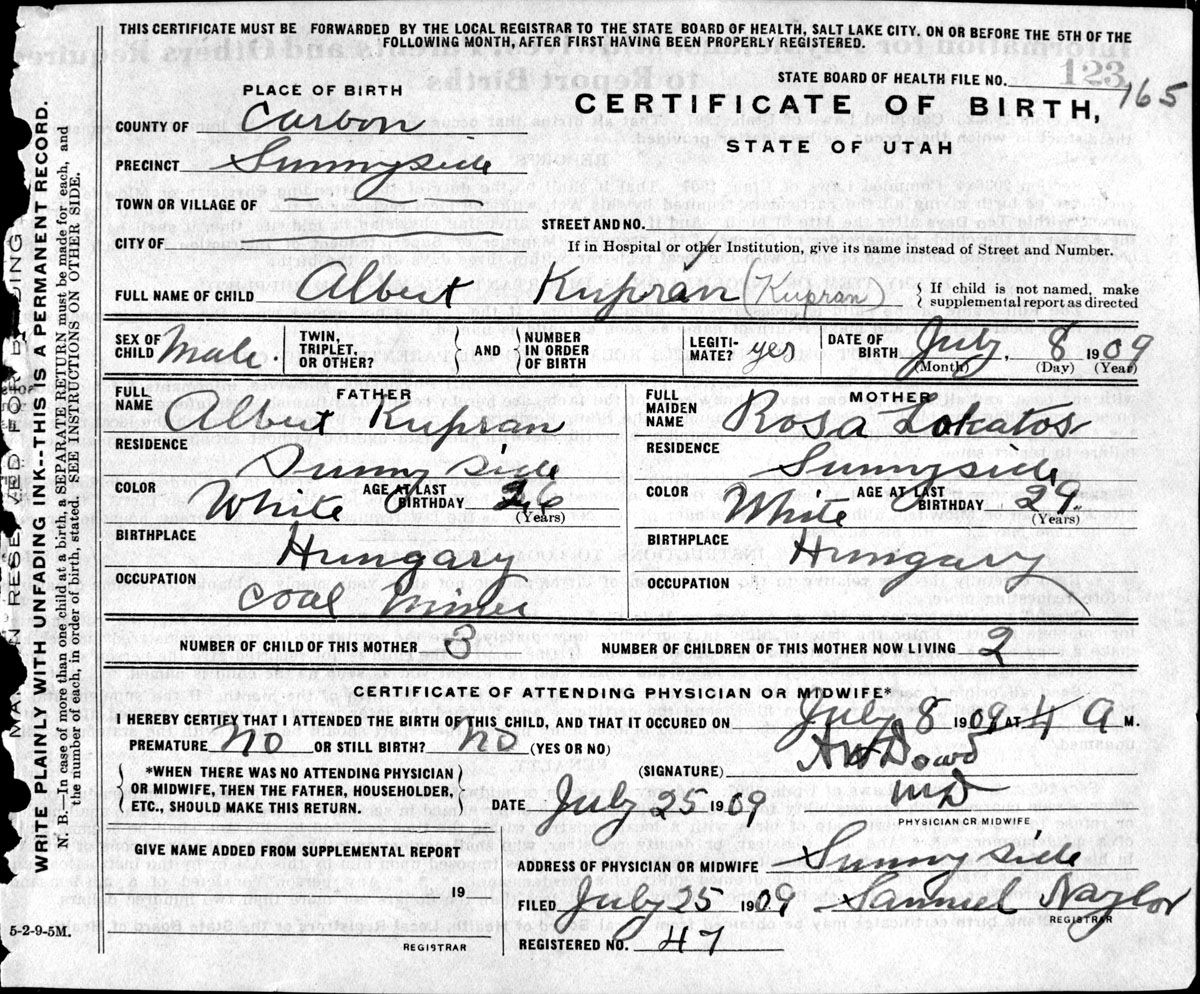 THIS CERTIFICATE MUST BE FORWARDED BY THE LOCAL REGISTRAR TO THE STATE BOARD OF HEALTH, SALT LAKE CITY. ON OR BEFORE THE 5TH OF THE
FOLLOWING MONTH, AFTER FIRST HAVING BEEN PROPERLY REGISTERED.
STATE BOARD OF HEALTH FILE NO. 123 165
PLACE OF BIRTH
CERTIFICATE OF BIRTH,
STATE OF UTAH
COUNTY OF Carbon
PRECINCT Sunnyside
TOWN OR VILLAGE OF
STREET AND NO.
CITY OF
If in Hospital or other Institution, give its name instead of Street and Number.
FULL NAME OF CHILD Albert Kupran (Kupran) { If child is not named, make
supplemental report as directed
SEX OF CHILD Male. TWIN, TRIPLET, OR OTHER? } AND { NUMBER IN ORDER OF BIRTH LEGITI-MATE? yes DATE OF BIRTH July, 8 1909
(Month) (Day) (Year)
FATHER
FULL NAME Albert Kupran
RESIDENCE Sunnyside
COLOR White AGE AT LAST BIRTHDAY 26 (Years)
BIRTHPLACE Hungary
OCCUPATION Coal miner
MOTHER
FULL MAIDEN NAME Rosa Lokatos
RESIDENCE Sunnyside
COLOR White AGE AT LAST BIRTHDAY 29. (Years)
BIRTHPLACE Hungary
OCCUPATION
NUMBER OF CHILD OF THIS MOTHER 3 NUMBER OF CHILDREN OF THIS MOTHER NOW LIVING 2
CERTIFICATE OF ATTENDING PHYSICIAN OR MIDWIFE*
I HEREBY CERTIFY THAT I ATTENDED THE BIRTH OF THIS CHILD, AND THAT IT OCCURED ON July 8 1909 AT 4 A M.
PREMATURE No OR STILL BIRTH? No (YES OR NO)
{ *WHEN THERE WAS NO ATTENDING PHYSICIAN
OR MIDWIFE, THEN THE FATHER, HOUSEHOLDER,
ETC., SHOULD MAKE THIS RETURN. }
(SIGNATURE) Dowd
MD
DATE July 25 1909
PHYSICIAN OR MIDWIFE
GIVE NAME ADDED FROM SUPPLEMENTAL REPORT
19
REGISTRAR
ADDRESS OF PHYSICIAN OR MIDWIFE Sunnyside
FILED July 25 1909 Samuel Naylor
REGISTRAR
REGISTERED NO. 47
5-2-9-5M.
WRITE PLAINLY WITH UNFADING INK--THIS IS A PERMANENT RECORD.
N. B.—In case of more than one child at a birth, a SEPARATE RETURN must be made for each, and
the number of each, in order of birth, stated. SEE INSTRUCTIONS ON OTHER SIDE.